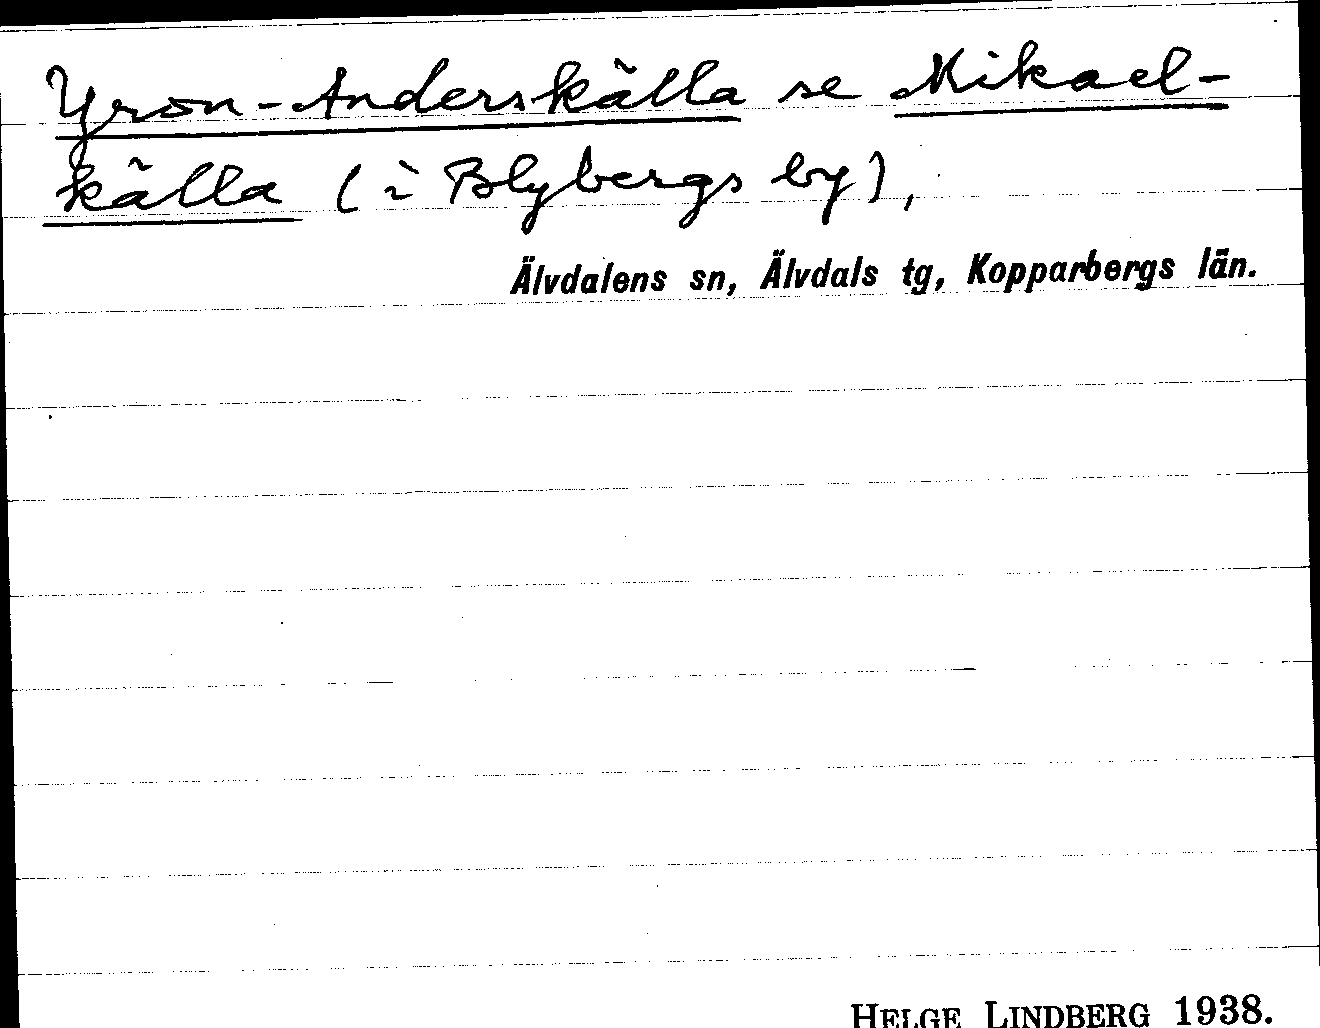 Yron-Anderskälla se Mikael-
källa (i Blybergs by),
Älvdalens sn, Älvdals tg, Kopparbergs län.
HELGE LINDBERG 1938.